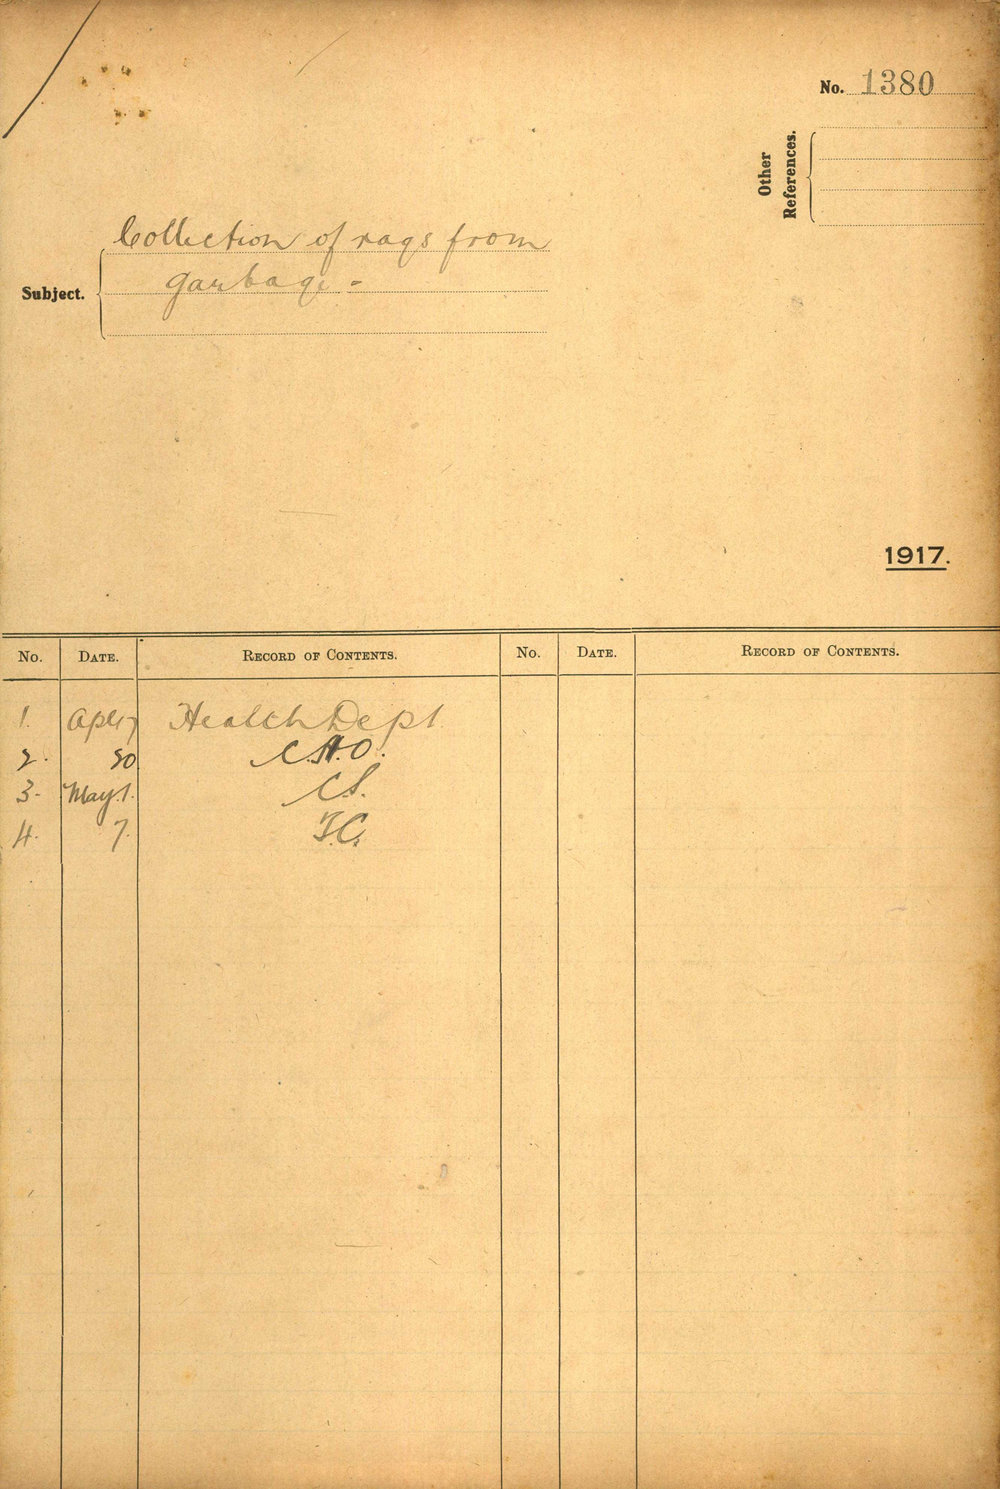 No. 1380
Other
References.
Collection of rags from
Subject.
garbage -
1917.
No. DATE. RECORD OF CONTENTS. No. DATE. RECORD OF CONTENTS.
1. Apl 17 Health Dept.
2. 20
3. May 1. C.S.
4. 7. T.C.